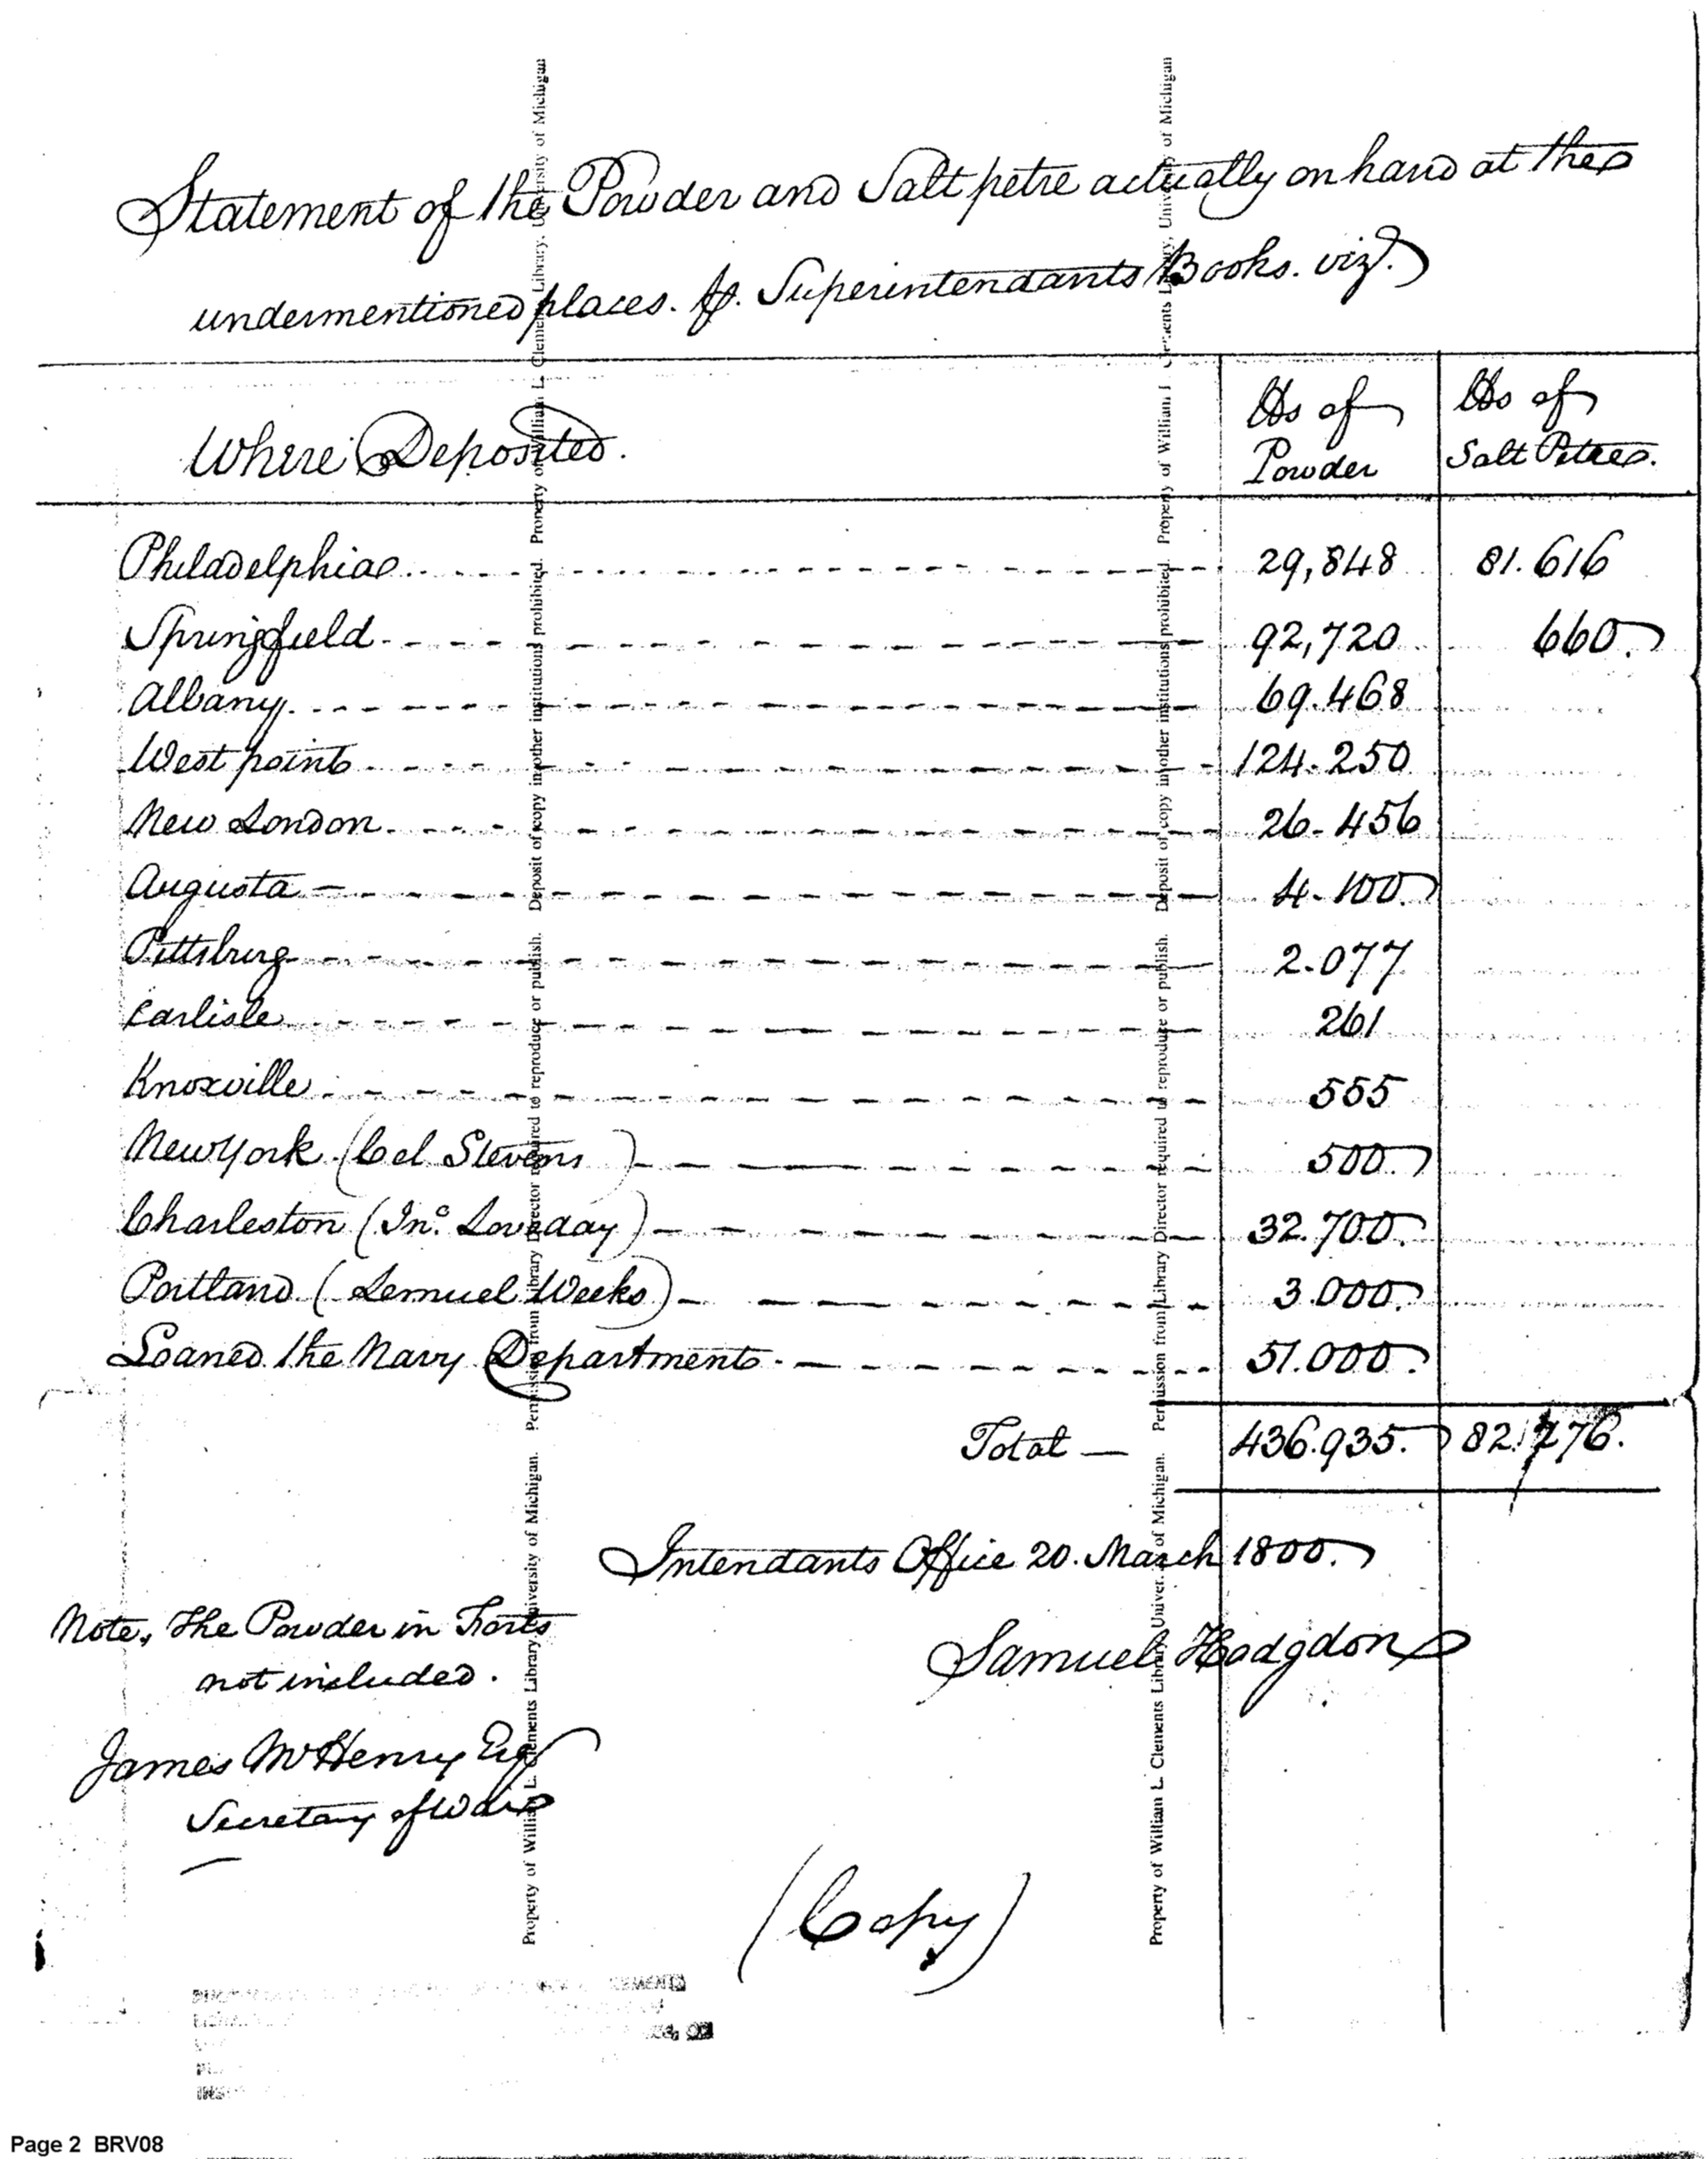 Statement of the Powder and Salt petre actually on hand at the
undermentioned places. ℔. Superintendants Books. vizt.
Where Deposited.
lbs of Powder
lbs of Salt Petre.
Philadelphia 29,848 81.616
Springfield 92,720 660.
Albany. 69.468
West point 124.250
New London 26.456
Augusta 4.100.
Pittsburg 2.077
Carlisle 261
Knoxville 555
New York (Col Stevens) 500.
Charleston (Jno. Loveday) 32.700.
Portland (Lemuel Weeks) 3.000.
Loaned the Navy Department 51.000.
Total — 436.935. 82.276.
Intendants Office 20. March 1800.
Note, The Powder in Forts
not included.
Samuel Hodgdon
James McHenry Esq
Secretary of War
(Copy)
Property of William L. Clements Library, University of Michigan. Permission from Library Director required to reproduce or publish. Deposit of copy in other institutions prohibited. Property of William L. Clements Library, University of Michigan
Property of William L. Clements Library, Univer. of Michigan. Permission from Library Director required to reproduce or publish. Deposit of copy in other institutions prohibited. Property of William L. Clements Library, University of Michigan
Page 2 BRV08